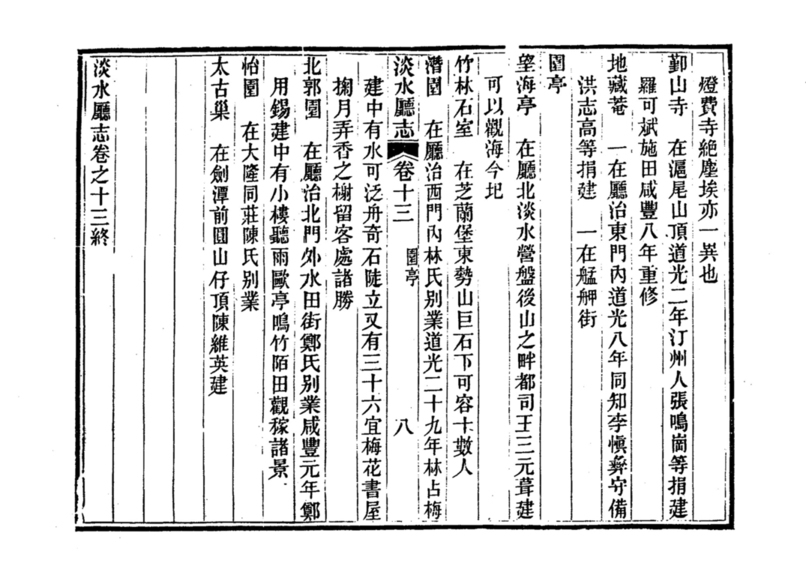 燈費寺絶塵埃亦一異也
鄞山寺　在滬尾山頂道光二年汀州人張鳴崗等捐建
羅可斌施田咸豐八年重修
地藏菴　一在廳治東門內道光八年同知李愼彝守備
洪志高等捐建　一在艋舺街
園亭
望海亭　在廳北淡水營盤後山之畔都司王三元葺建
可以觀海今圯
竹林石室　在芝蘭堡東勢山巨石下可容十數人
潛園　在廳治西門內林氏别業道光二十九年林占梅
淡水廳志　卷十三　園亭　八
建中有水可泛舟奇石陡立又有三十六宜梅花書屋
掬月弄香之榭留客處諸勝
北郭園　在廳治北門外水田街鄭氏别業咸豐元年鄭
用錫建中有小樓聽雨歐亭鳴竹陌田觀稼諸景
怡園　在大隆同莊陳氏别業
太古巢　在劍潭前圓山仔頂陳維英建
淡水廳志卷之十三終